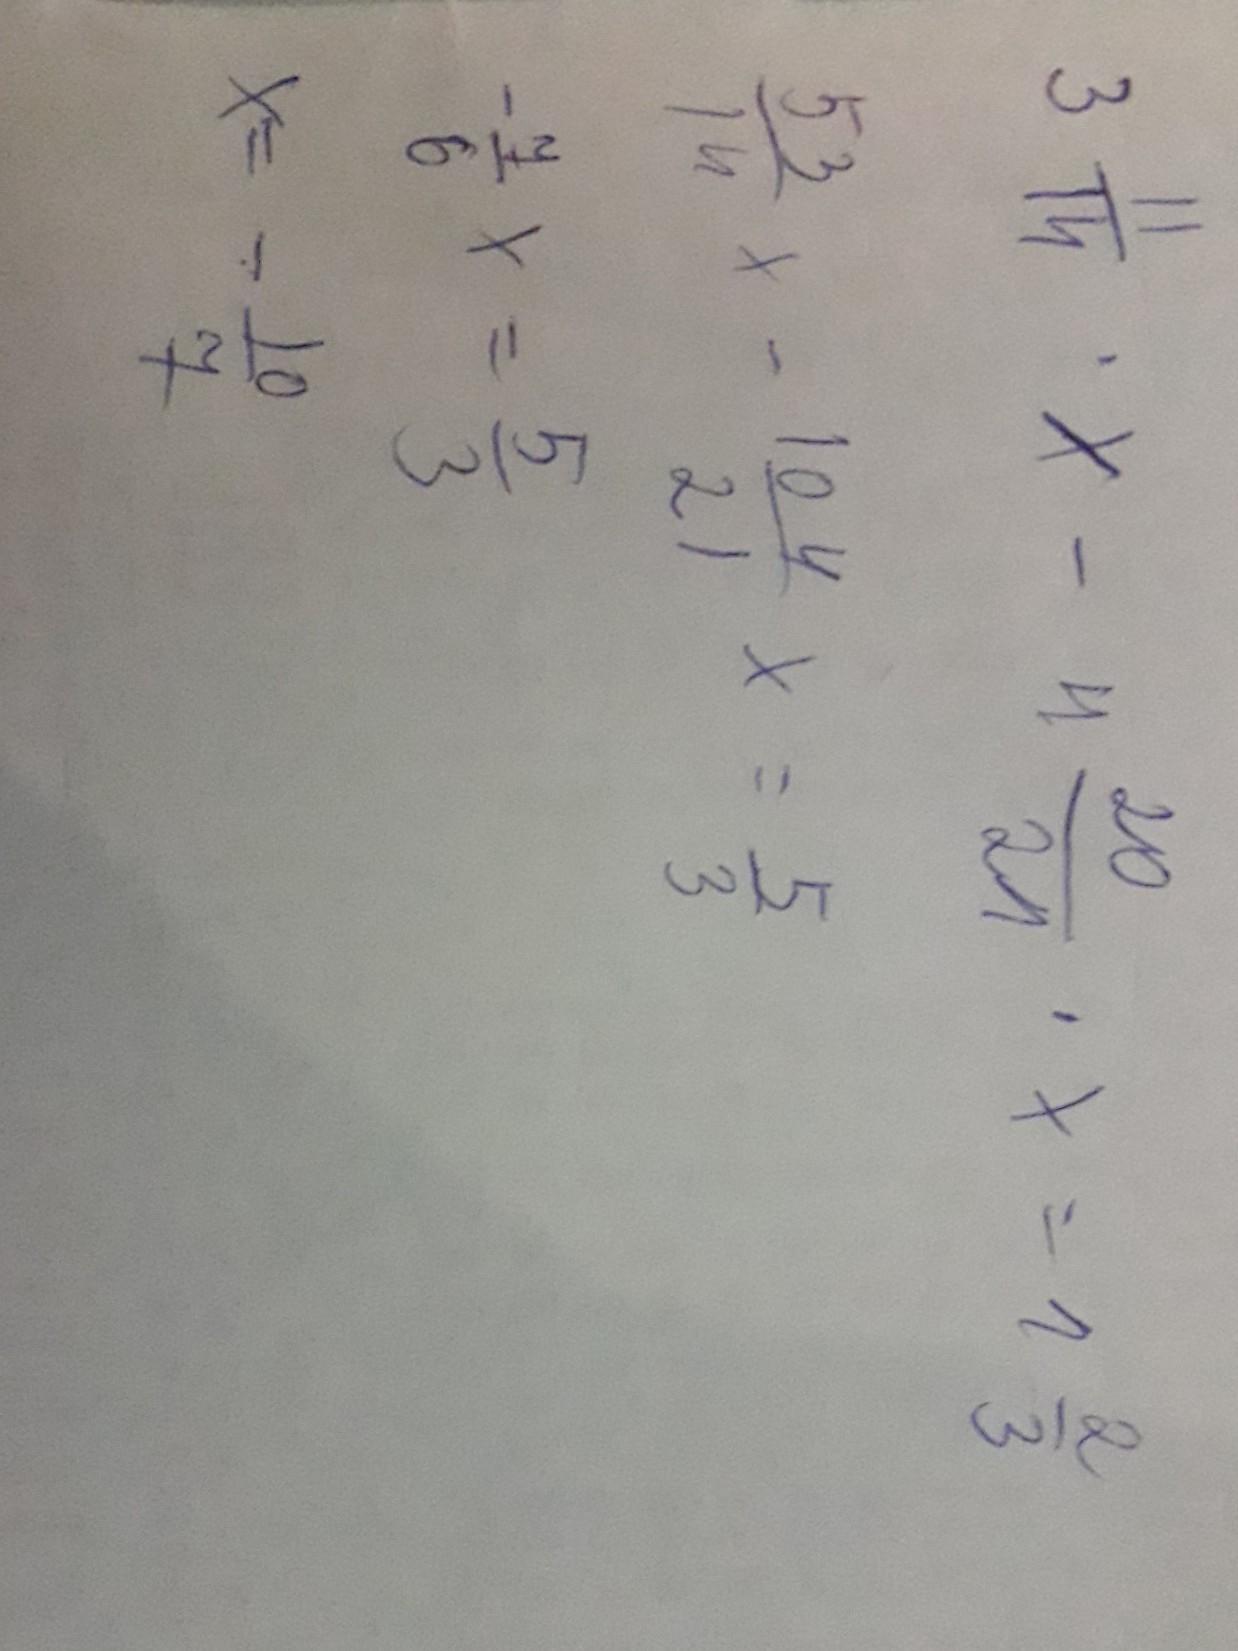 3 11/14 · x - 4 20/21 · x = 1 2/3
53/14 x - 104/21 x = 5/3
-7/6 x = 5/3
x = - 10/7